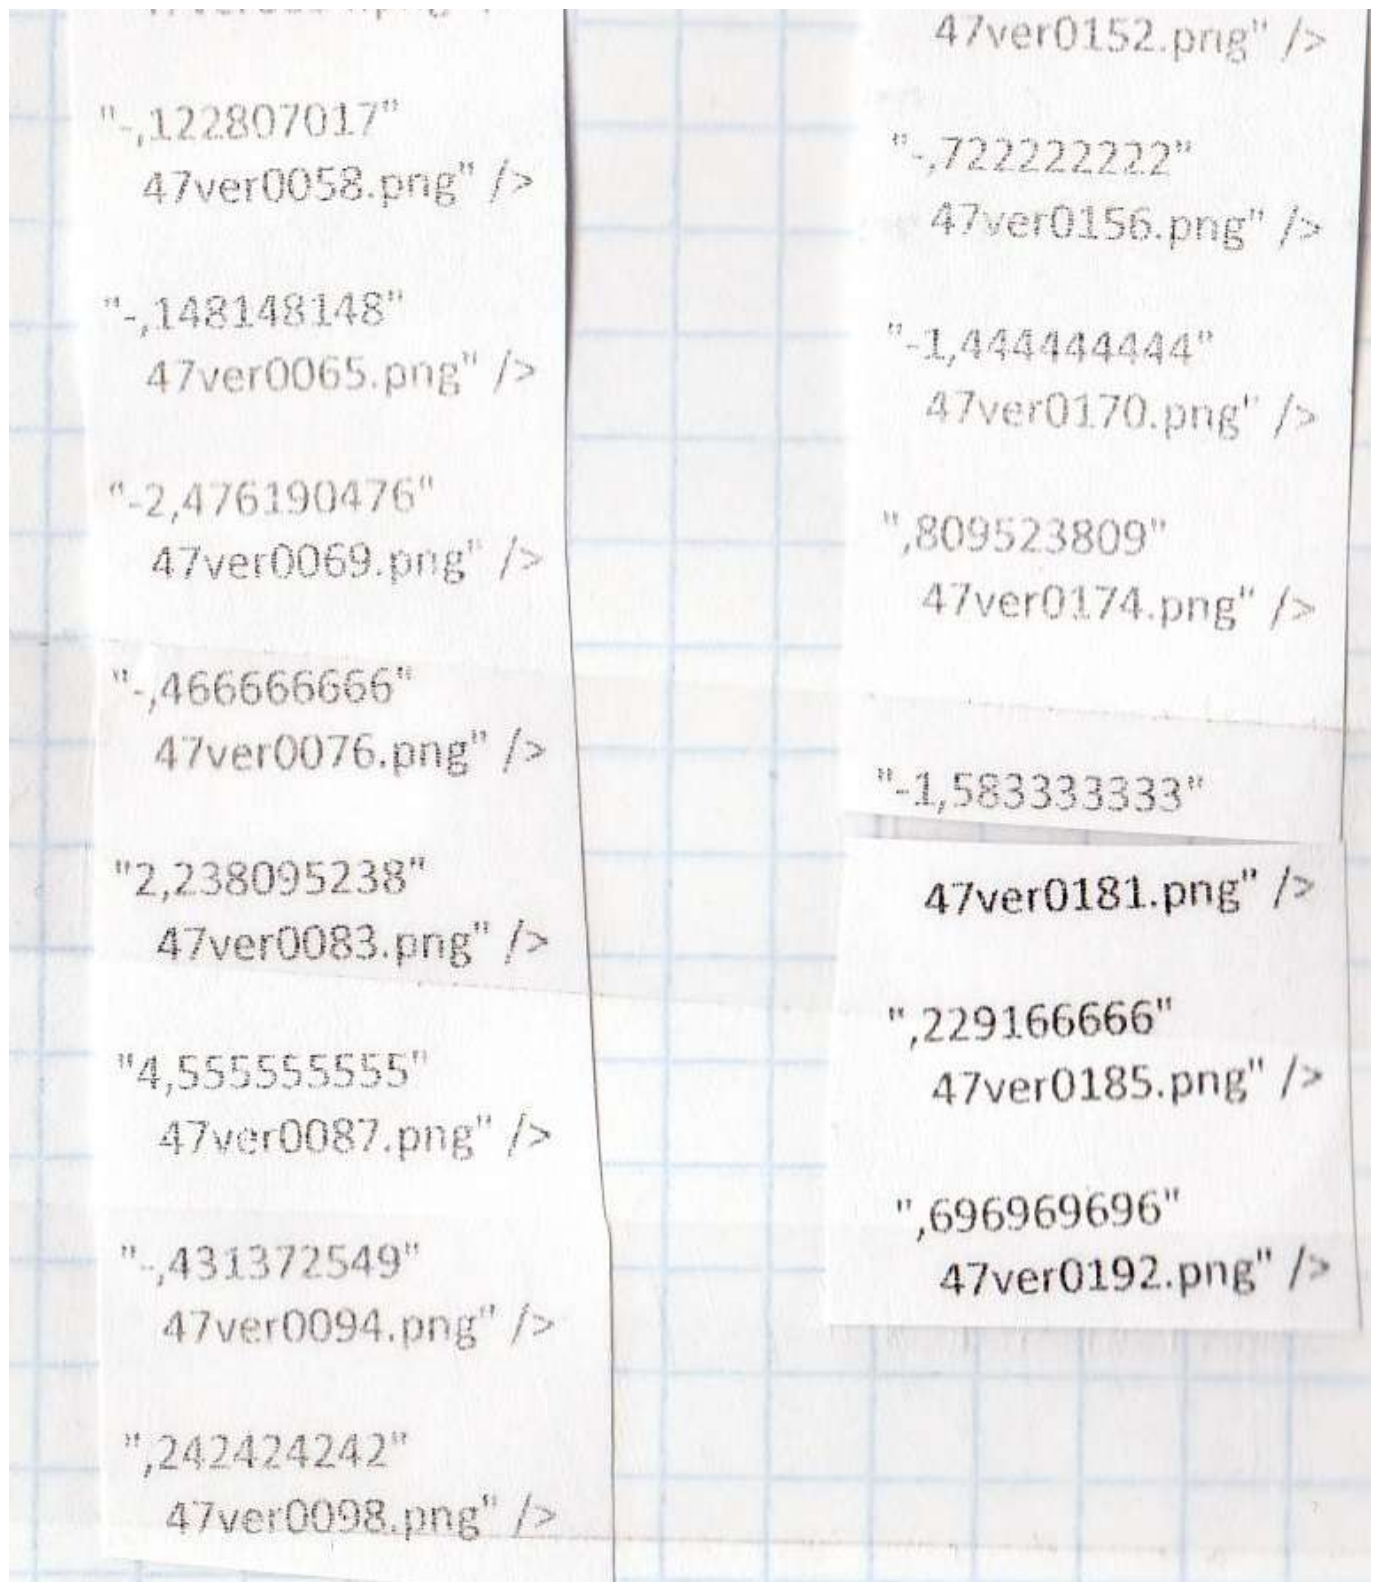 "-,122807017"
47ver0058.png" />
"-,148148148"
47ver0065.png" />
"-2,476190476"
47ver0069.png" />
"-,466666666"
47ver0076.png" />
"2,238095238"
47ver0083.png" />
"4,555555555"
47ver0087.png" />
"-,431372549"
47ver0094.png" />
",242424242"
47ver0098.png" />
47ver0152.png" />
"-,722222222"
47ver0156.png" />
"-1,444444444"
47ver0170.png" />
",809523809"
47ver0174.png" />
"-1,583333333"
47ver0181.png" />
",229166666"
47ver0185.png" />
",696969696"
47ver0192.png" />